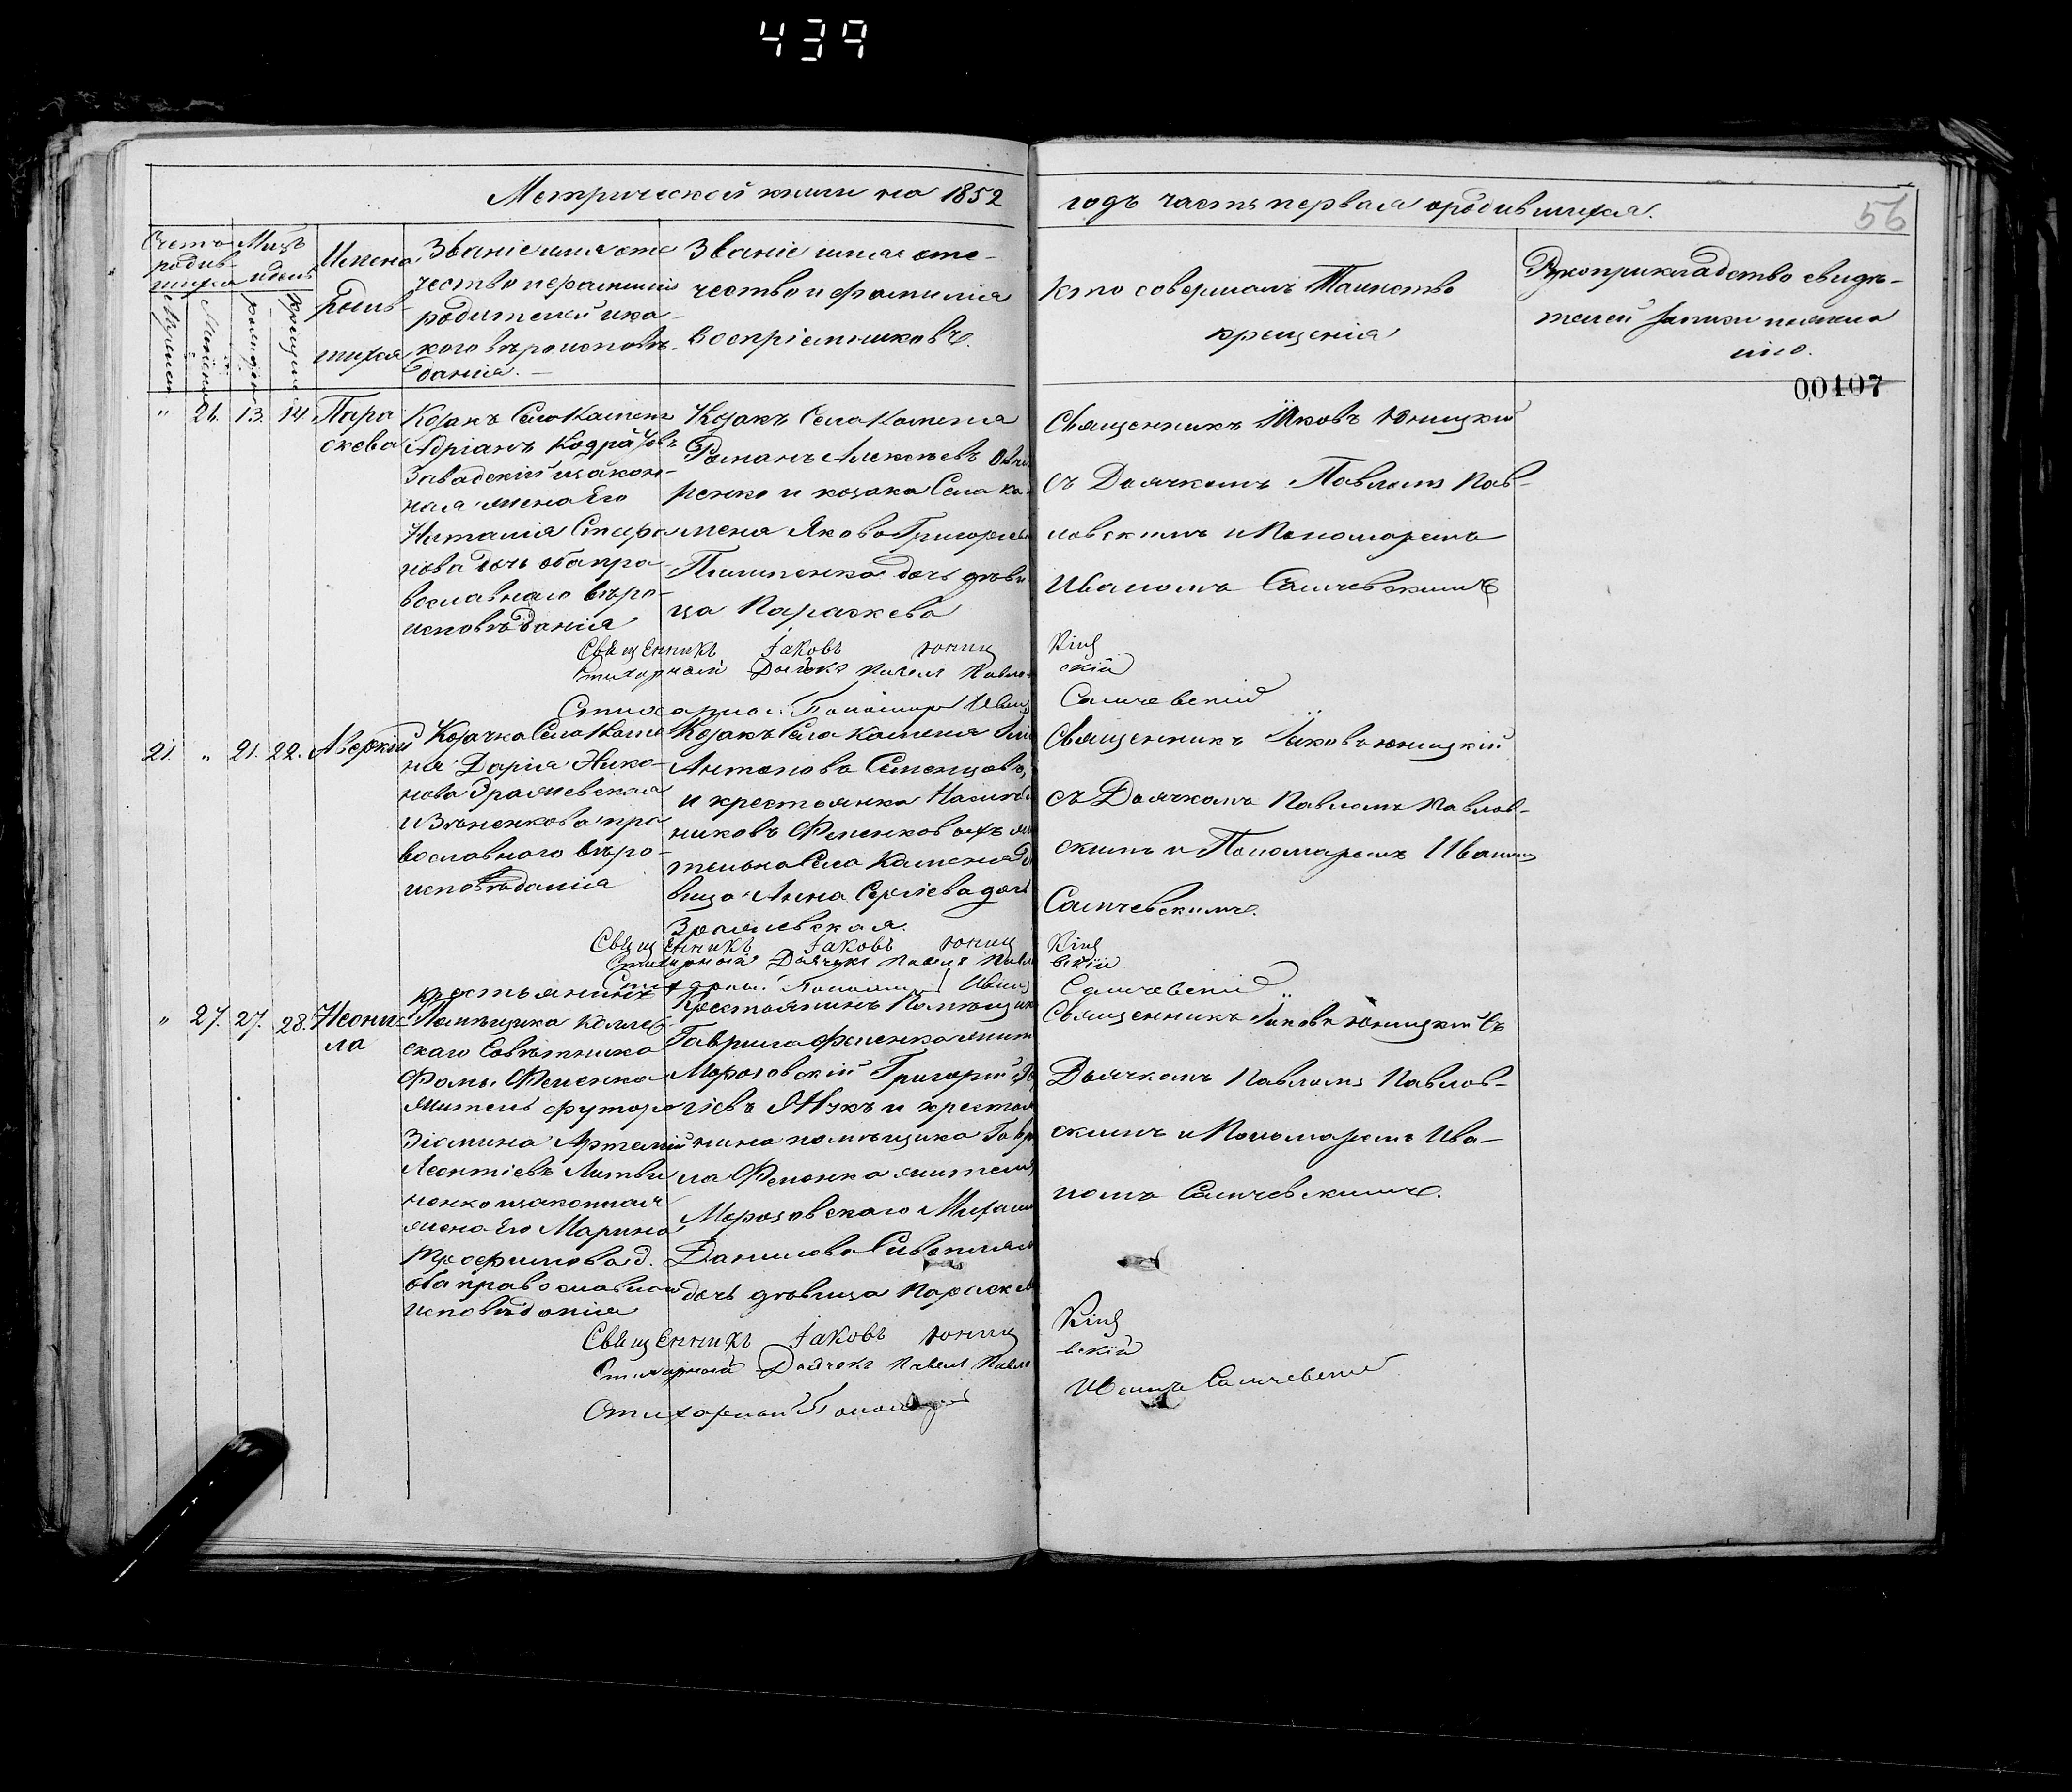 439
Метрической книги на 1852
годъ часть первая о родившихся.
56
Счетъ родив-шихся
Мѣсяцъ и день
Имена родив-шихся
Званіе имя оте-
чество и фамилія
родителей и ка-
кого вѣроисповѣ-
данія.
Званіе имя оте-
чество и фамилія
воспріемниковъ.
Кто совершалъ Таинство
крещенія
Рукоприкладство свидѣ-
телей записи по жела
нію.
00107
" 26. 13. 14 Пара
скева
Козакъ Села Каменя
Адріанъ Кодратовъ
Завадскій и закон-
ная жена Его
Наталія
дочь оба пра
вославнаго вѣро-
исповѣданія
Козакъ Села Каменя
Романъ Алексѣевъ
ренко и козака Села Ка
меня Якова Григорьева
Пилипенка дочь дѣви
ца Параскева
Священникъ Іяковъ Юницкій
съ Дьячкомъ Павломъ Пав-
ловскимъ и Пономаремъ
Иваномъ Самчевскимъ
Священникъ Іаковъ Юниц
кій
Стихарный Дьячекъ Павелъ Павло
скій
Стихарный Пономарь Иванъ
Самчевскій
21. " 21. 22. Аверкій
Козачка Села Каме
ня Дарія Нико-
нова
пра
вославнаго вѣро-
исповѣданія
Козакъ Села Каменя
Антонова Семенцовъ,
и крестьянка
никовъ Фененковыхъ жи
телька Села Каменя дѣ
вица Анна Сергіева дочь
Священникъ Іяковъ Юницкій
съ Дьячкомъ Павломъ Павлов-
скимъ и Пономаремъ Иваномъ
Самчевскимъ.
Священникъ Іаковъ Юниц
кій
Стихарный Дьячекъ Павелъ Павло
вскій
Стихарный Пономарь Иванъ
Самчевскій
" 27. 27. 28. Неони-
ла
крестьянинъ
Помѣщика Коллеж
скаго Совѣтника
Фомы Фененка
житель хутора
Зіомина Артемій
Леонтіевъ Литви
ненко и законная
жена Его Марина
Трофимова д.
оба православнаго
исповѣданія
Крестьянинъ Помѣщика
Гаврила Фененка жит
Морозовскій Григорій
гіевъ и крестья
нина помѣщика Гаври
ла Фененка жителя
Морозовскаго Михаила
Данилова
дочь дѣвица Параскева
Священникъ Іаковъ Юницкій съ
Дьячкомъ Павломъ Павлов-
скимъ и Пономаремъ Ива-
номъ Самчевскимъ.
Священникъ Іаковъ Юниц
кій
Стихарный Дьячекъ Павелъ Павло
вскій
Стихарный Пономарь
Иванъ Самчевскій